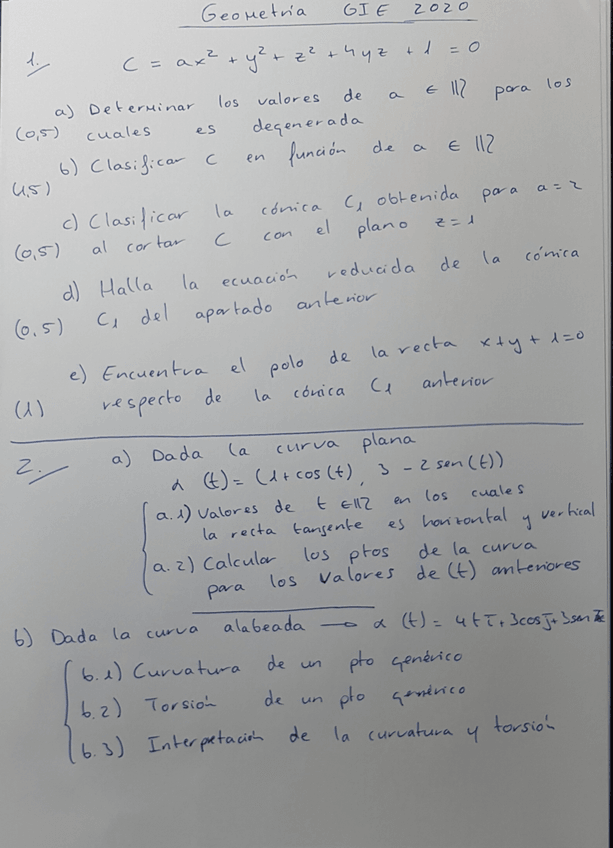 Geometría GIE 2020
1. C = ax² + y² + z² + 4yz + 1 = 0
a) Determinar los valores de a ∈ ℝ para los
(0,5) cuales es degenerada
b) Clasificar C en función de a ∈ ℝ
(1,5)
c) Clasificar la cónica C₁ obtenida para a = 2
(0,5) al cortar C con el plano z = 1
d) Halla la ecuación reducida de la cónica
(0,5) C₁ del apartado anterior
e) Encuentra el polo de la recta x+y+1=0
(1) respecto de la cónica C₁ anterior
2. a) Dada la curva plana
α (t) = (1+cos(t), 3 - 2sen(t))
a.1) Valores de t ∈ ℝ en los cuales
la recta tangente es horizontal y vertical
a.2) Calcular los ptos de la curva
para los valores de (t) anteriores
b) Dada la curva alabeada → α (t) = 4t i + 3cos j + 3sen k
b.1) Curvatura de un pto genérico
b.2) Torsión de un pto genérico
b.3) Interpetación de la curvatura y torsión